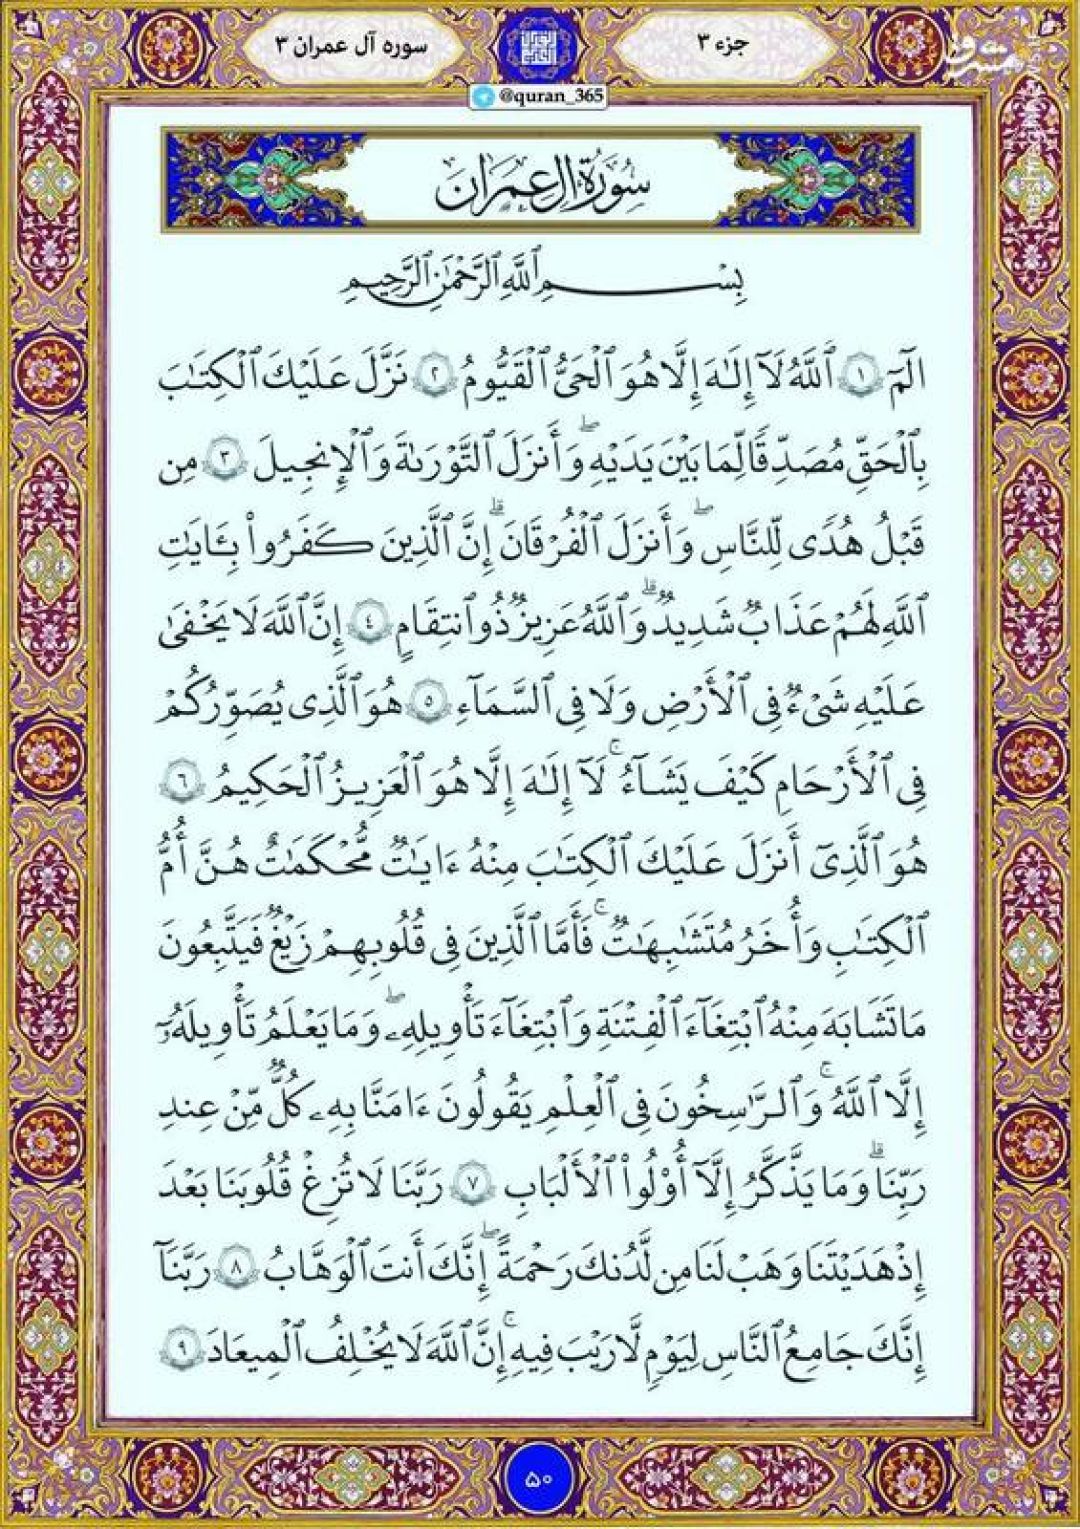 جزء ۳
سوره آل عمران ۳
مشرق
@quran_365
سُورَةُ آلِ عِمْرَانَ
بِسْمِ ٱللَّهِ ٱلرَّحْمَٰنِ ٱلرَّحِيمِ
الٓمٓ ١ ٱللَّهُ لَآ إِلَٰهَ إِلَّا هُوَ ٱلْحَىُّ ٱلْقَيُّومُ ٢ نَزَّلَ عَلَيْكَ ٱلْكِتَٰبَ
بِٱلْحَقِّ مُصَدِّقًا لِّمَا بَيْنَ يَدَيْهِ ۖ وَأَنزَلَ ٱلتَّوْرَىٰةَ وَٱلْإِنجِيلَ ٣ مِن
قَبْلُ هُدًى لِّلنَّاسِ ۖ وَأَنزَلَ ٱلْفُرْقَانَ ۗ إِنَّ ٱلَّذِينَ كَفَرُوا۟ بِـَٔايَٰتِ
ٱللَّهِ لَهُمْ عَذَابٌ شَدِيدٌ ۗ وَٱللَّهُ عَزِيزٌ ذُو ٱنتِقَامٍ ٤ إِنَّ ٱللَّهَ لَا يَخْفَىٰ
عَلَيْهِ شَىْءٌ فِى ٱلْأَرْضِ وَلَا فِى ٱلسَّمَآءِ ٥ هُوَ ٱلَّذِى يُصَوِّرُكُمْ
فِى ٱلْأَرْحَامِ كَيْفَ يَشَآءُ ۚ لَآ إِلَٰهَ إِلَّا هُوَ ٱلْعَزِيزُ ٱلْحَكِيمُ ٦
هُوَ ٱلَّذِىٓ أَنزَلَ عَلَيْكَ ٱلْكِتَٰبَ مِنْهُ ءَايَٰتٌ مُّحْكَمَٰتٌ هُنَّ أُمُّ
ٱلْكِتَٰبِ وَأُخَرُ مُتَشَٰبِهَٰتٌ ۚ فَأَمَّا ٱلَّذِينَ فِى قُلُوبِهِمْ زَيْغٌ فَيَتَّبِعُونَ
مَا تَشَٰبَهَ مِنْهُ ٱبْتِغَآءَ ٱلْفِتْنَةِ وَٱبْتِغَآءَ تَأْوِيلِهِۦ ۖ وَمَا يَعْلَمُ تَأْوِيلَهُۥٓ
إِلَّا ٱللَّهُ ۗ وَٱلرَّٰسِخُونَ فِى ٱلْعِلْمِ يَقُولُونَ ءَامَنَّا بِهِۦ كُلٌّ مِّنْ عِندِ
رَبِّنَا ۗ وَمَا يَذَّكَّرُ إِلَّآ أُو۟لُوا۟ ٱلْأَلْبَٰبِ ٧ رَبَّنَا لَا تُزِغْ قُلُوبَنَا بَعْدَ
إِذْ هَدَيْتَنَا وَهَبْ لَنَا مِن لَّدُنكَ رَحْمَةً ۚ إِنَّكَ أَنتَ ٱلْوَهَّابُ ٨ رَبَّنَآ
إِنَّكَ جَامِعُ ٱلنَّاسِ لِيَوْمٍ لَّا رَيْبَ فِيهِ ۚ إِنَّ ٱللَّهَ لَا يُخْلِفُ ٱلْمِيعَادَ ٩
۵۰